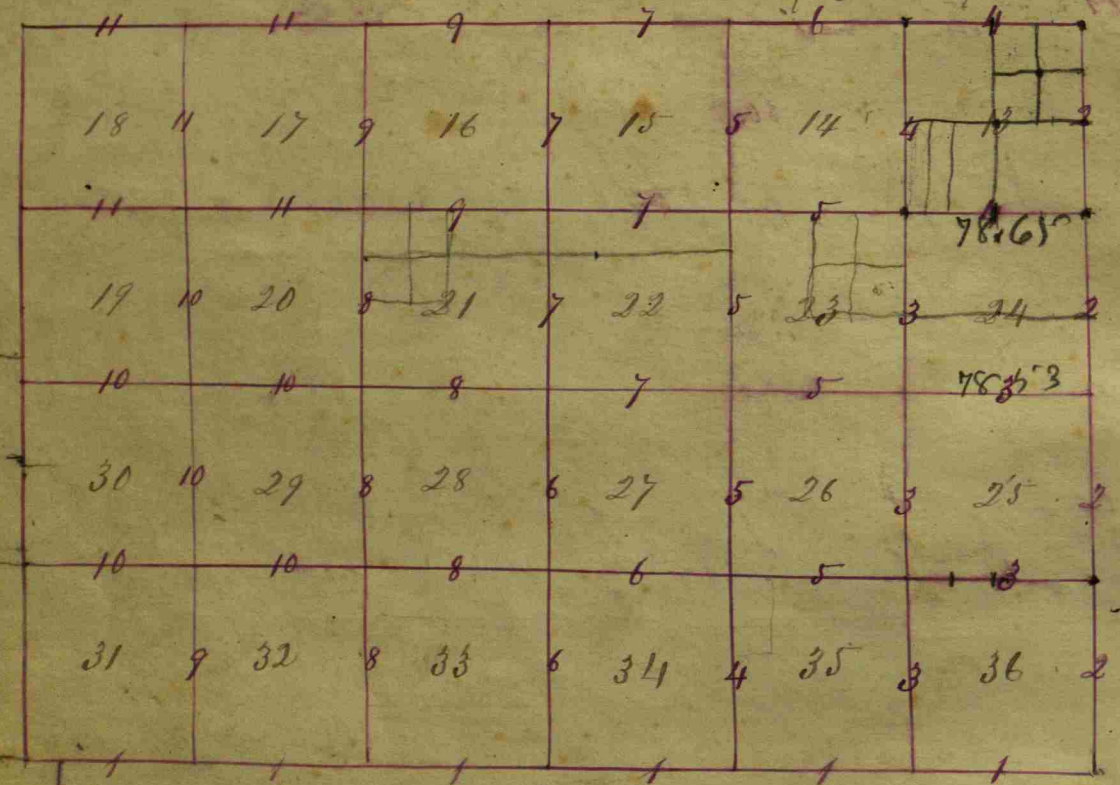 11 11 9 7 6 4
18 11 17 9 16 7 15 5 14 4 13 2
11 11 9 7 5
78.65
19 10 20 8 21 7 22 5 23 3 24 2
10 10 8 7 5 3
78
30 10 29 8 28 6 27 5 26 3 25 2
10 10 8 6 5 3
31 9 32 8 33 6 34 4 35 3 36 2
1 1 1 1 1 1